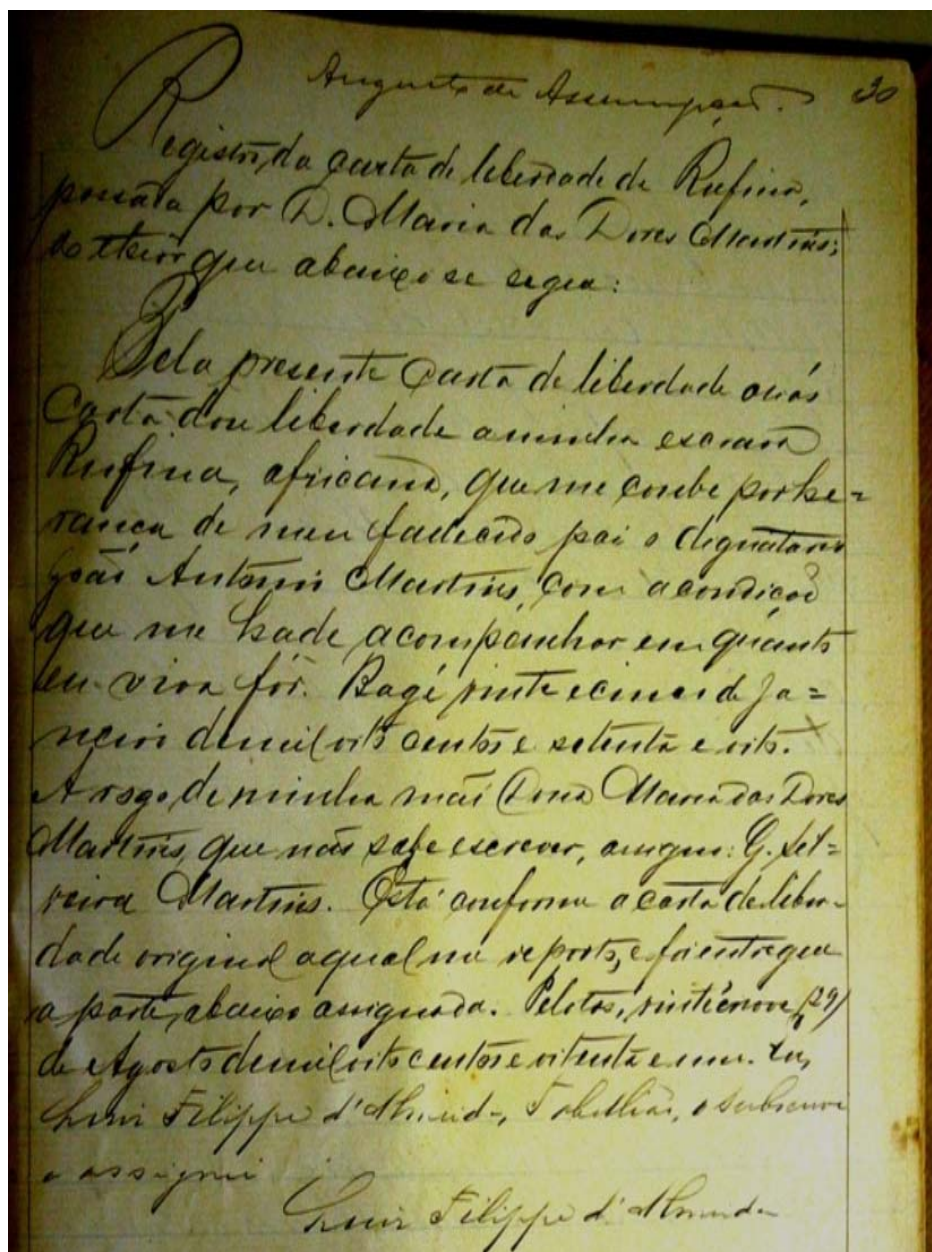 Augusto de Assumpção. 30
Registro da carta de liberdade de Rufina,
passada por D. Maria das Dores Martins,
do theor que abaixo se segue:
Pela presente Carta de liberdade
Carta dou liberdade a minha escrava
Rufina, africana, que me coube por he=
rança de meu fallecido pai o
João Antonio Martins, com a condição
que me hade acompanhar em quanto
eu viva fôr. Bagé vinte e cinco de Ja=
neiro de mil oito centos e setenta e oito.
A rogo de minha mãi Dona Maria das Dores
Martins, que não sabe escrever, assigno: G. Sil=
veira Martins. Está conforme a carta de liber=
dade original a qual me reporto, e foi entregue
a parte, abaixo assignada. Pelotas, vinte e nove (29)
de Agosto de mil oito centos e oitenta e um. Eu,
Luis Filippe d'Almeida, Tabellião, o subscrevi
e assignei
Luis Filippe d'Almeida